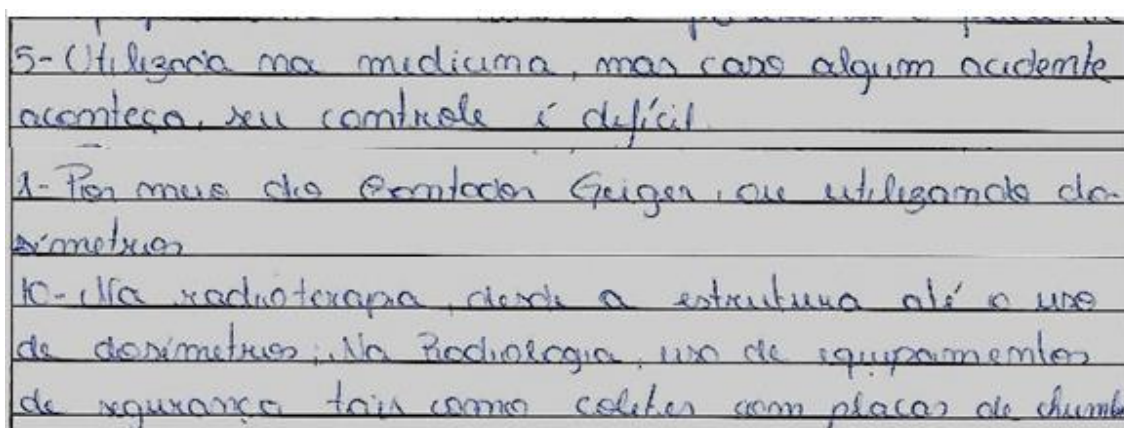 5- Utilizada na medicina, mas caso algum acidente
aconteça, seu controle é difícil.
1- Por meio do Contador Geiger, ou utilizando do-
símetros
10- Na radioterapia, desde a estrutura até o uso
de dosímetros; Na Radiologia, uso de equipamentos
de segurança tais como coletes com placas de chumbo